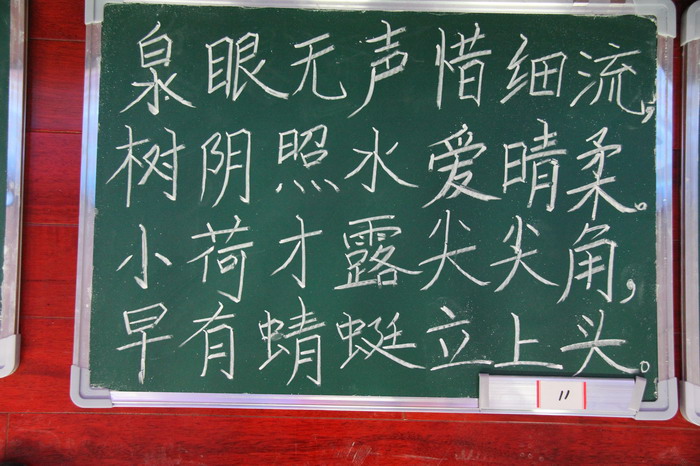 泉眼无声惜细流,
树阴照水爱晴柔。
小荷才露尖尖角,
早有蜻蜓立上头。
11